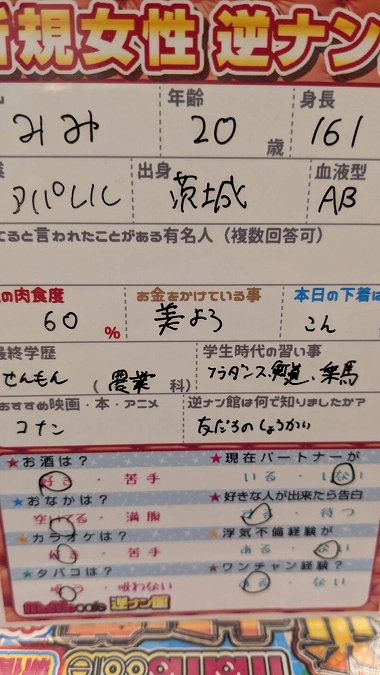 新規女性 逆ナン
年齢 身長
みみ 20 歳 161
出身 血液型
アパレル 茨城 AB
てると言われたことがある有名人（複数回答可）
の肉食度 お金をかけている事 本日の下着は
60 % 美よう こん
最終学歴 学生時代の習い事
せんもん （農業 科） フラダンス、剣道、乗馬
おすすめ映画・本・アニメ 逆ナン館は何で知りましたか？
コナン 友だちのしょうかい
★お酒は？ ★現在パートナーが
好き・苦手 いる・いない
★おなかは？ ★好きな人が出来たら告白
空いてる・満腹 する・待つ
★カラオケは？ ★浮気不倫経験が
好き・苦手 ある・ない
★タバコは？ ★ワンチャン経験？
吸う・吸わない ある・ない
MaMacafe 逆ナン館